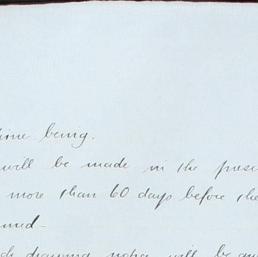 time being.
will be made in the prese
more than 60 days before the
will be